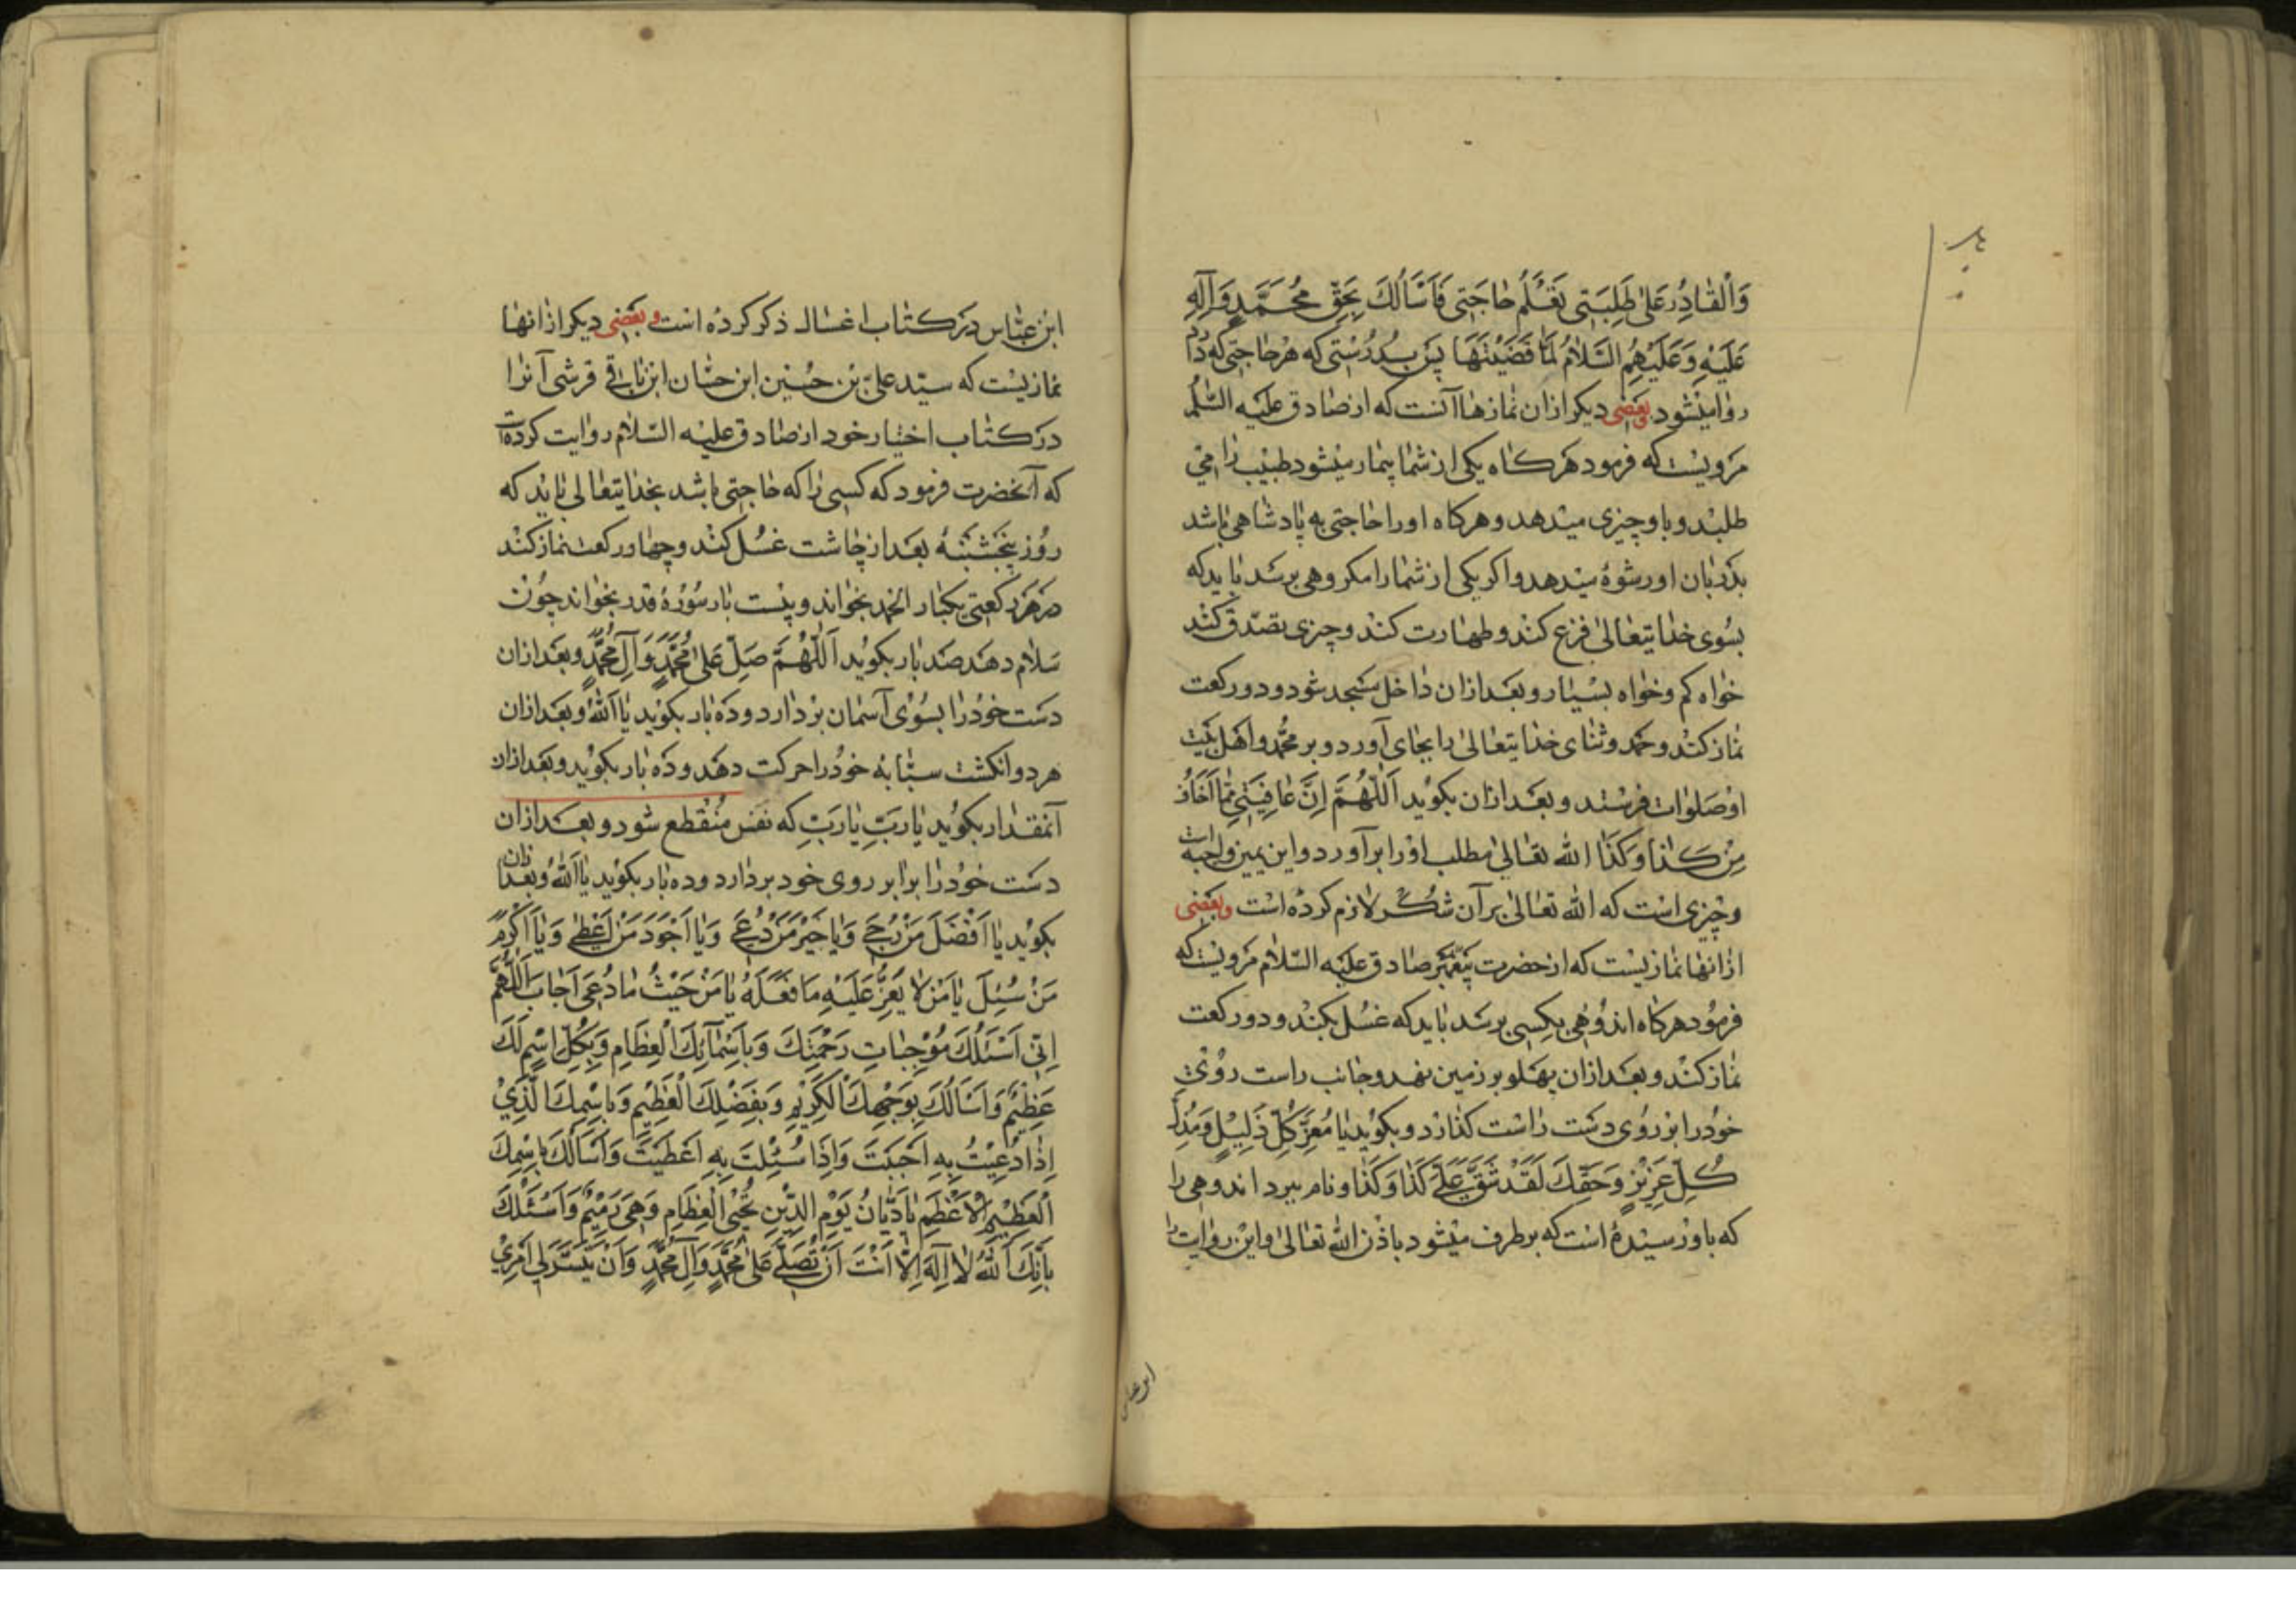 وَالْقٰادِرُ عَلىٰ طَلِبَتٖى تَعْلَمُ حٰاجَتٖى فَاَسْأَلُكَ بِحَقِّ مُحَمَّدٍ وَآلِهِ
عَلَيْهِ وَعَلَيْهِمُ السَّلاٰمُ لَمّٰا قَضَيْتَهٰا پس بدرستى كه هر حاجتى كه دارد
روا ميشود وبعضى ديكر از ان نمازها آنست كه از صادق عليه السّلم
مرويست كه فرمود هركاه يكى از شما بيمار ميشود طبيب را مى
طلبد وباو چيزى ميدهد وهركاه او را حاجتى به پادشاهى باشد
بدربان او رشوهٔ ميدهد واكر يكى از شما را مكروهى برسد بايد كه
بسوى خدايتعالى فزع كند وطهارت كند وچيزى تصدّق كند
خواه كم وخواه بسيار وبعد از ان داخل مسجد شود ودو ركعت
نماز كند وحمد وثناى خدايتعالى را بجاى آورد وبر محمّد واهل بيت
او صلوات فرستد وبعد از ان بكويد اَللّٰهُمَّ اِنْ عٰافَيْتَنٖى مِمّٰا اَخٰافُ
مِنْ كَذٰا وَكَذٰا الله تعالى مطلب او را برآورد واين يمين واجبه است
وچيزى است كه الله تعالى بر آن شكر لازم كرده است وبعضى
از انها نمازيست كه از حضرت پيغمبر صادق عليه السّلام مرويست كه
فرمود هركاه اندوهى بكسى برسد بايد كه غسل بكند ودو ركعت
نماز كند وبعد از ان پهلو بر زمين نهد وجانب راست روى
خود را بر روى دست راست كذارد وبكويد يٰا مُعِزَّ كُلِّ ذَلِيْلٍ وَمُذِلَّ
كُلِّ عَزِيْزٍ وَحَقِّكَ لَقَدْ شَقَّ عَلَىَّ كَذٰا وَكَذٰا ونام ببرد اندوهى را
كه باو رسيده است كه برطرف ميشود باذن الله تعالى واين روايت را
ابن عباس
ابن عبّاس در كتاب اغسال ذكر كرده است وبعضى ديكر از انها
نمازيست كه سيّد علىّ بن حسين ابن حسّان ابن باقى قرشى آنرا
در كتاب اختيار خود از صادق عليه السّلام روايت كرده است
كه آنحضرت فرمود كه كسى را كه حاجتى باشد بخدايتعالى بايد كه
روز پنجشنبه بعد از چاشت غسل كند وچهار ركعت نماز كند
در هر ركعتى يكبار الحمد بخواند وبيست بار سورهٔ قدر بخواند چون
سلام دهد صد بار بكويد اَللّٰهُمَّ صَلِّ عَلىٰ مُحَمَّدٍ وَآلِ مُحَمَّدٍ وبعد از ان
دست خود را بسوى آسمان بردارد وده بار بكويد يٰا اَللّٰهُ وبعد از ان
هر دو انكشت سبّابه خود را حركت دهد وده بار بكويد وبعد از ان
آنمقدار بكويد يٰا رَبِّ يٰا رَبِّ كه نفس منقطع شود وبعد از ان
دست خود را برابر روى خود بردارد وده بار بكويد يٰا اَللّٰهُ وبعد از ان
بكويد يٰا اَفْضَلَ مَنْ رُجِىَ وَيٰا خَيْرَ مَنْ دُعِىَ وَيٰا اَجْوَدَ مَنْ اَعْطىٰ وَيٰا اَكْرَمَ
مَنْ سُئِلَ يٰا مَنْ لاٰ يَعِزُّ عَلَيْهِ مٰا فَعَلَهُ يٰا مَنْ حَيْثُ مٰا دُعِىَ اَجٰابَ اَللّٰهُمَّ
اِنِّى اَسْئَلُكَ مُوْجِبٰاتِ رَحْمَتِكَ وَبِاَسْمٰآئِكَ الْعِظٰامِ وَبِكُلِّ اسْمٍ لَكَ
عَظِيْمٌ وَاَسْاَلُكَ بِوَجْهِكَ الْكَرِيْمِ وَبِفَضْلِكَ الْعَظِيْمِ وَبِاسْمِكَ الَّذِيْ
اِذٰا دُعِيْتَ بِهِ اَجَبْتَ وَاِذٰا سُئِلْتَ بِهِ اَعْطَيْتَ وَاَسْاَلُكَ بِاسْمِكَ
الْعَظِيْمِ الْاَعْظَمِ يٰا دَيّٰانَ يَوْمِ الدِّيْنِ مُحْيِىَ الْعِظٰامِ وَهِىَ رَمِيْمٌ وَاَسْئَلُكَ
بِاَنَّكَ اَللّٰهُ لاٰ اِلٰهَ اِلاّٰ اَنْتَ اَنْ تُصَلِّىَ عَلىٰ مُحَمَّدٍ وَآلِ مُحَمَّدٍ وَاَنْ تُيَسِّرَ لِى اَمْرِيْ